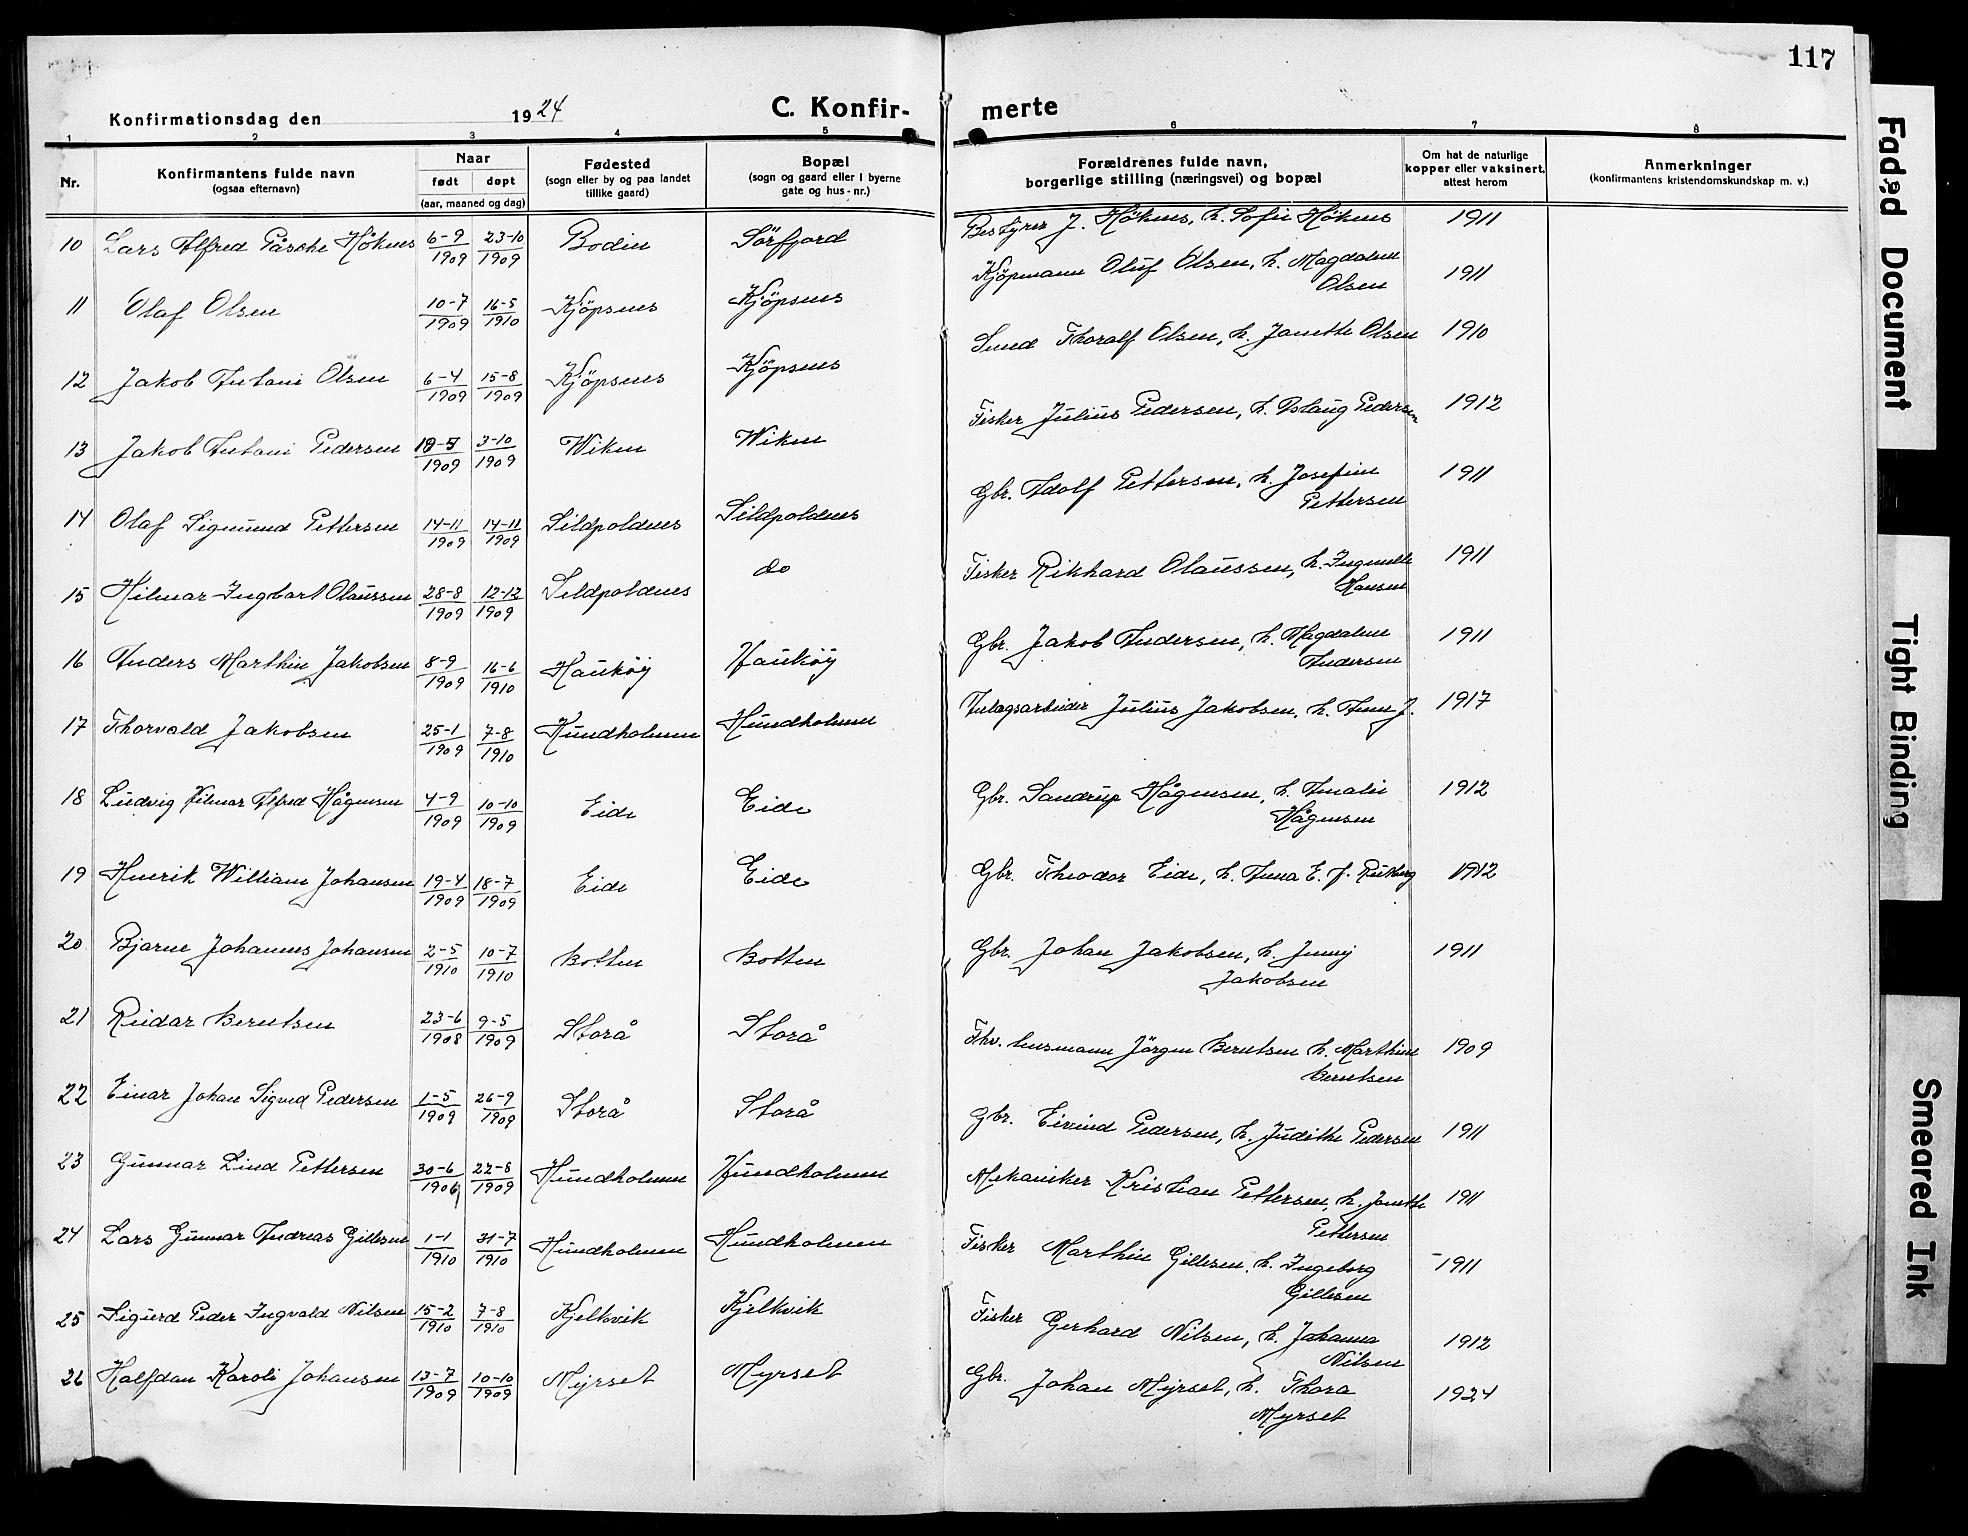 117
Konfirmationsdag den 1924
C. Konfir- merte
1 2 3 4 5 6 7 8
Nr. Konfirmantens fulde navn (ogsaa efternavn) Naar født døpt (aar, maaned og dag) Fødested (sogn eller by og paa landet tillike gaard) Bopæl (sogn og gaard eller i byerne gate og hus-nr.) Forældrenes fulde navn, borgerlige stilling (næringsvei) og bopæl Om hat de naturlige kopper eller vaksinert, attest herom Anmerkninger (konfirmantens kristendomskundskap m. v.)
10 Lars Alfred Påscke Höknes 6-9 1909 23-10 1909 Bodin Sörfjord Bestyrer J. Höknes, h. Sofie Höknes 1911
11 Olaf Olsen 10-7 1909 16-5 1910 Kjöpsnes Kjöpsnes Kjöpmann Oluf Olsen, h. Magdalene Olsen 1911
12 Jakob Antani Olsen 6-4 1909 15-8 1909 Kjöpsnes Kjöpsnes Smed Thoralf Olsen, h. Janetke Olsen 1910
13 Jakob Antani Pedersen 1909 3-10 1909 Wiken Wiken Fisker Julius Pedersen, h. Aslaug Pedersen 1912
14 Olaf Sigmund Pettersen 14-11 1909 14-11 1909 Sildpoldnes Sildpoldnes Gbr. Adolf Pettersen, h. Josefine Pettersen 1911
15 Hilmar Ingbart Olaussen 28-8 1909 12-12 1909 Sildpoldnes do Fisker Rikhard Olaussen, h. Hansen 1911
16 Anders Marthin Jakobsen 8-9 1909 16-6 1910 Hauköy Hauköy Gbr. Jakob Andersen, h. Magdalene Andersen 1911
17 Thorvald Jakobsen 25-1 1909 7-8 1910 Hundholmen Hundholmen Anlægsarbeider Julius Jakobsen, h. Anne J. 1917
18 Ludvig Hilmar Alfred Hågensen 4-9 1909 10-10 1909 Eide Eide Gbr. Sandrup Hågensen, h. Amalie Hågensen 1912
19 Henrik William Johansen 19-4 1909 18-7 1909 Eide Eide Gbr. Theodor Eide, h. Anna E. f. 1912
20 Bjarne Johannes Johansen 2-5 1910 10-7 1910 Botten Botten Gbr. Johan Jakobsen, h. Jenny Jakobsen 1911
21 Reidar Berntsen 23-6 1908 9-5 1909 Storå Storå Fhv. lensmann Jörgen Berntsen h. Marthine Berntsen 1909
22 Einar Johan Sigved Pedersen 1-5 1909 26-9 1909 Storå Storå Gbr. Eivind Pedersen, h. Judithe Pedersen 1911
23 Gunnar Lind Pettersen 30-6 22-8 1909 Hundholmen Hundholmen Mekaniker Kristian Pettersen, h. Janetke Pettersen 1911
24 Lars Gunnar Andreas Gillesen 1-1 1910 31-7 1910 Hundholmen Hundholmen Fisker Marthin Gillesen, h. Ingeborg Gillesen 1911
25 Sigurd Peder Ingvald Nilsen 15-2 1910 7-8 1910 Kjelkvik Kjelkvik Fisker Gerhard Nilsen, h. Johanna Nilsen 1912
26 Halfdan Karoli Johansen 13-7 1909 10-10 1909 Myrset Myrset Gbr. Johan Myrset, h. Thora Myrset 1924
Faded Document
Tight Binding
Smeared Ink